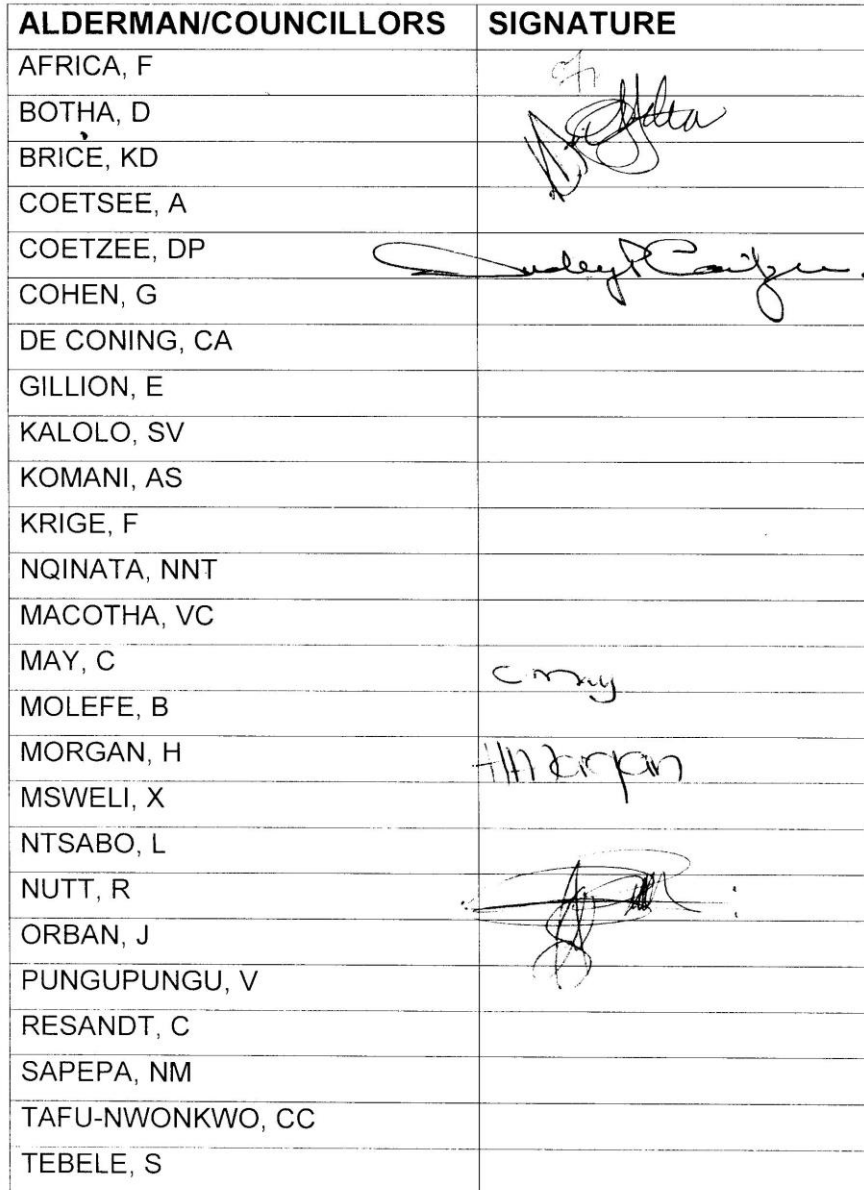 ALDERMAN/COUNCILLORS SIGNATURE
AFRICA, F
BOTHA, D
BRICE, KD
COETSEE, A
COETZEE, DP
COHEN, G
DE CONING, CA
GILLION, E
KALOLO, SV
KOMANI, AS
KRIGE, F
NQINATA, NNT
MACOTHA, VC
MAY, C C May
MOLEFE, B
MORGAN, H H Morgan
MSWELI, X
NTSABO, L
NUTT, R
ORBAN, J
PUNGUPUNGU, V
RESANDT, C
SAPEPA, NM
TAFU-NWONKWO, CC
TEBELE, S